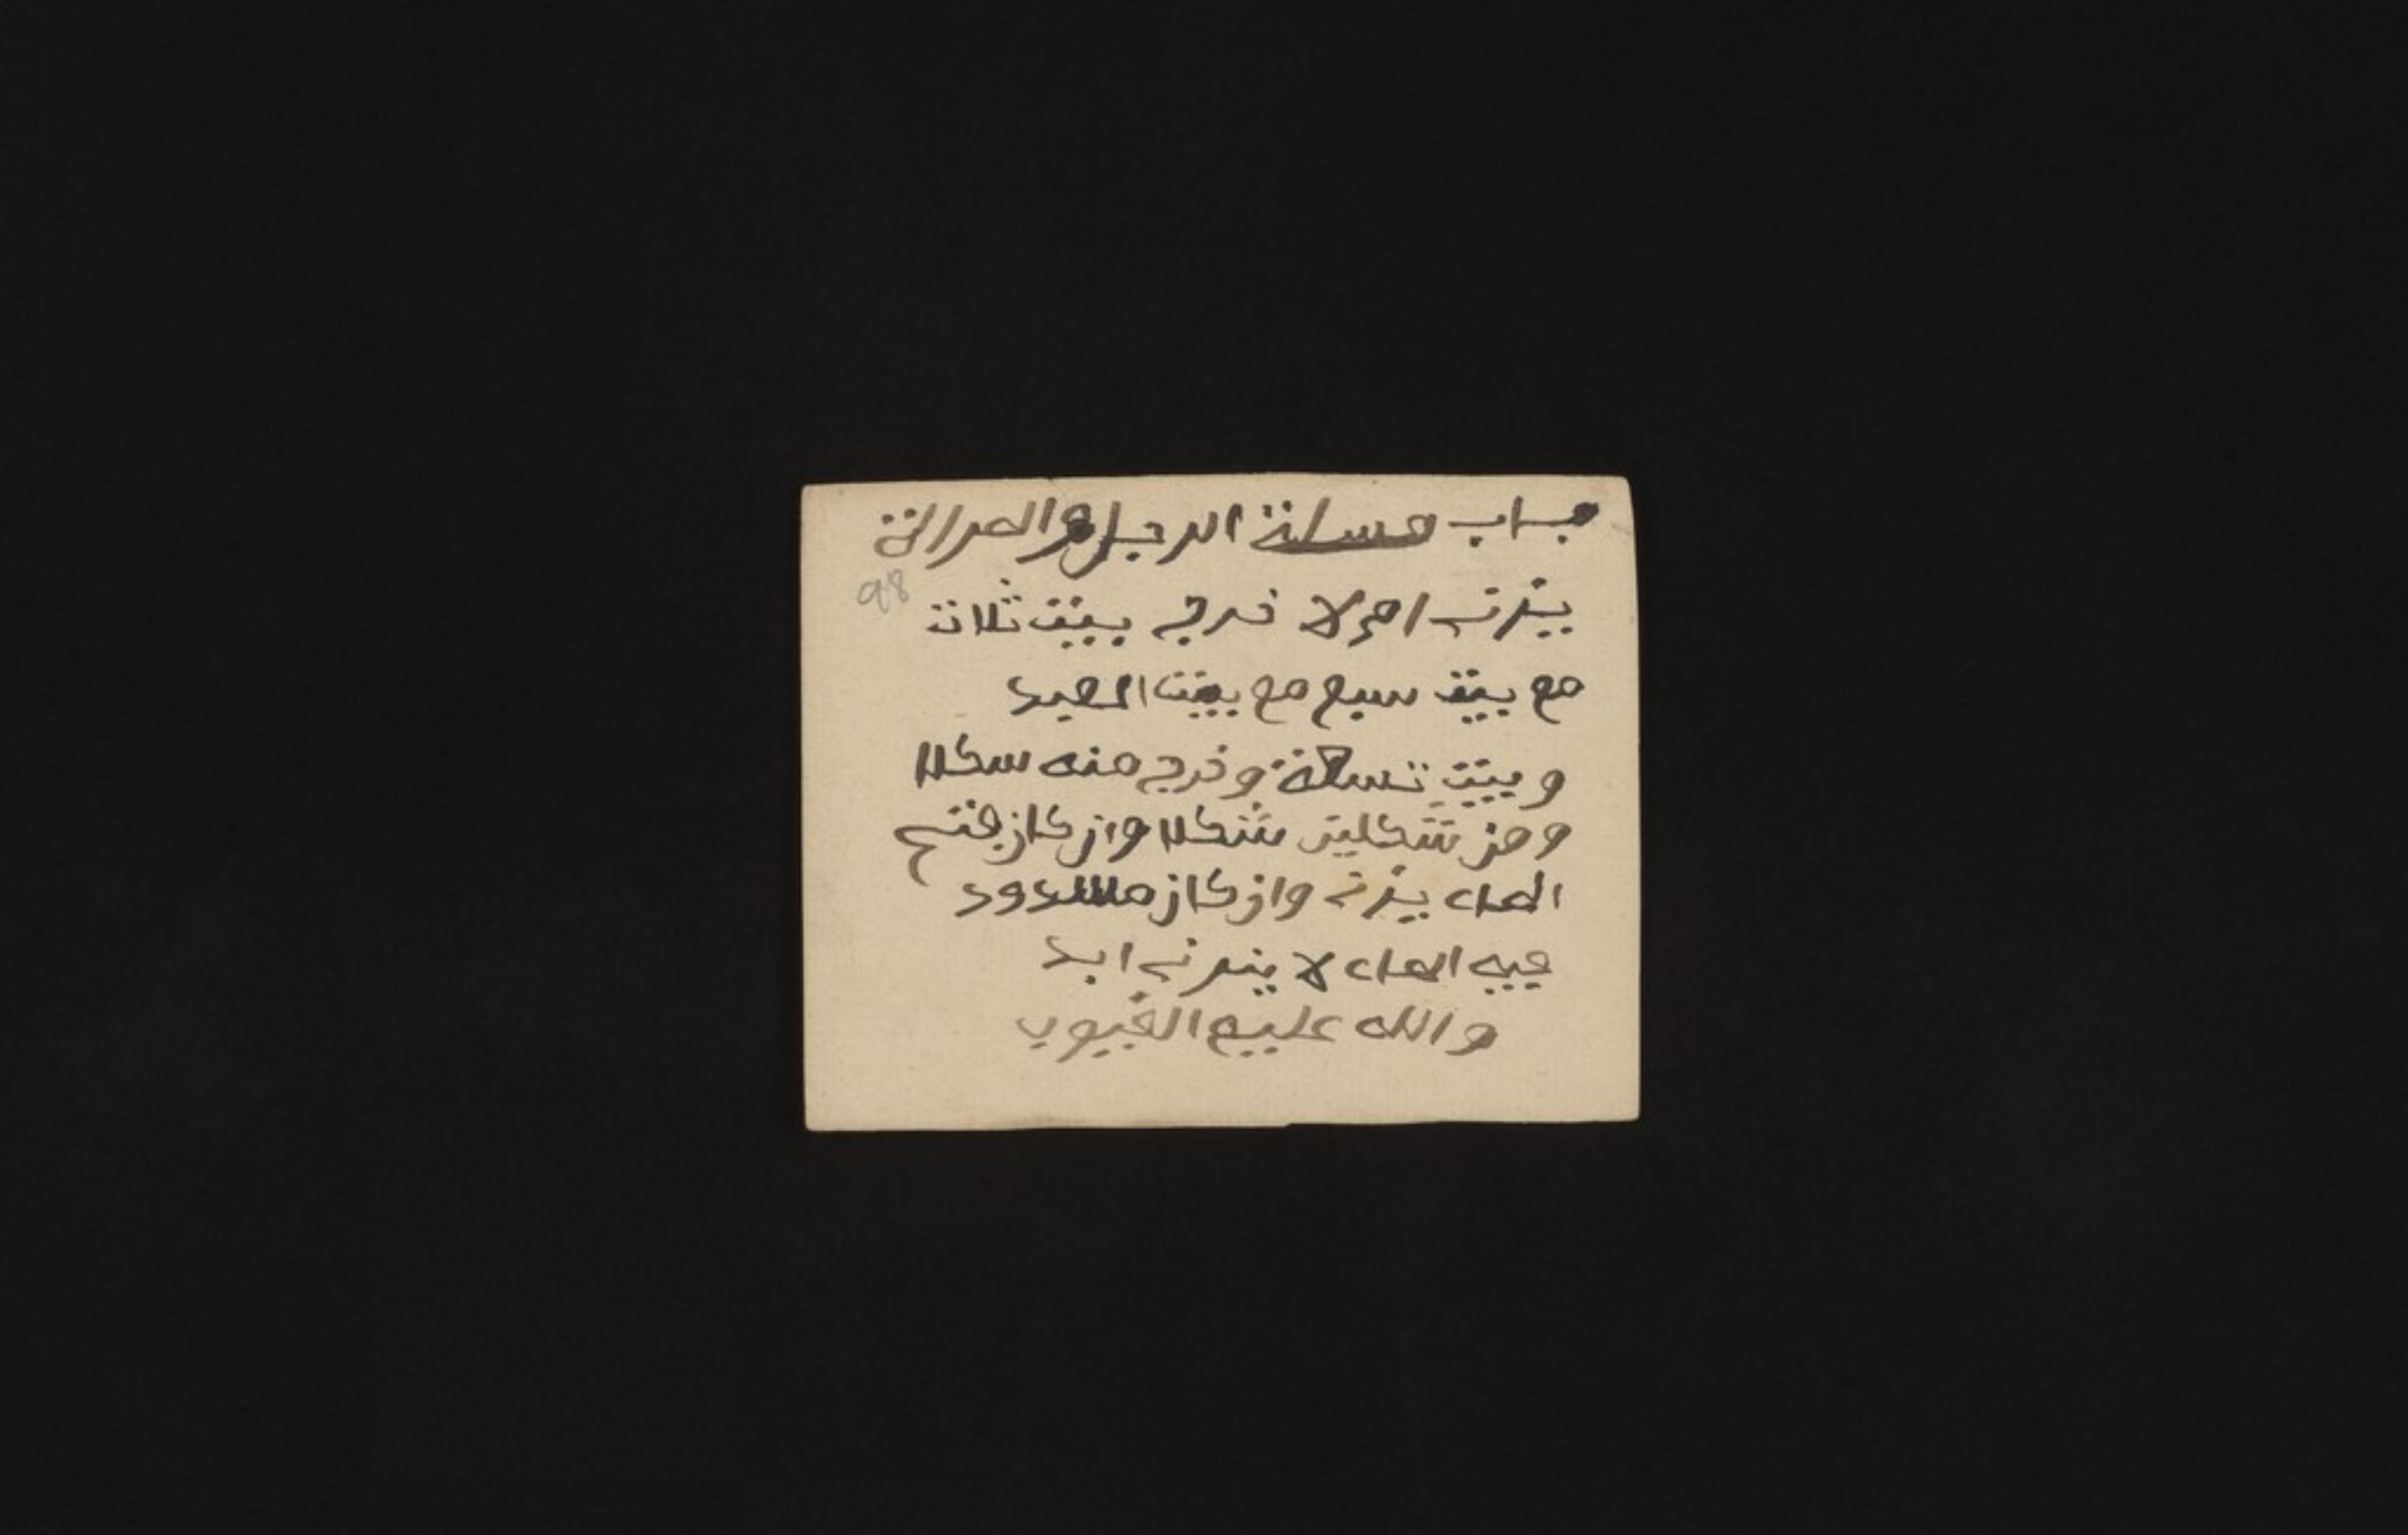 باب مسلة الرجل والمراة
98
ينزته ام لا خرج بيت ثلاث
مع بيت سبع مع بيت العبد
وبيت تسعة وخرج منه سكلا
ومن شكلين شكلا وان كان فتح
الماء ينزته وان كان مسدود
فيه الماء لا ينزته ابد
والله عليم الغيوب